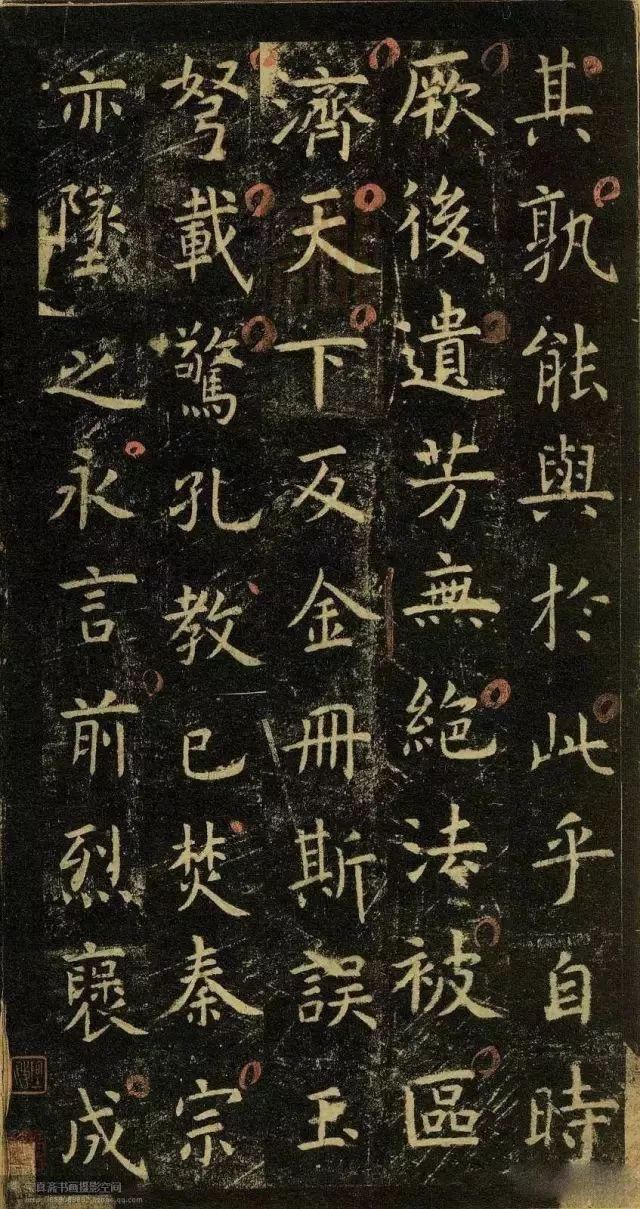 其孰能與於此乎自時
厥後遺芳無絕法被區
濟天下反金冊斯誤玉
弩載驚孔教已焚秦宗
亦墜之永言前烈褒成